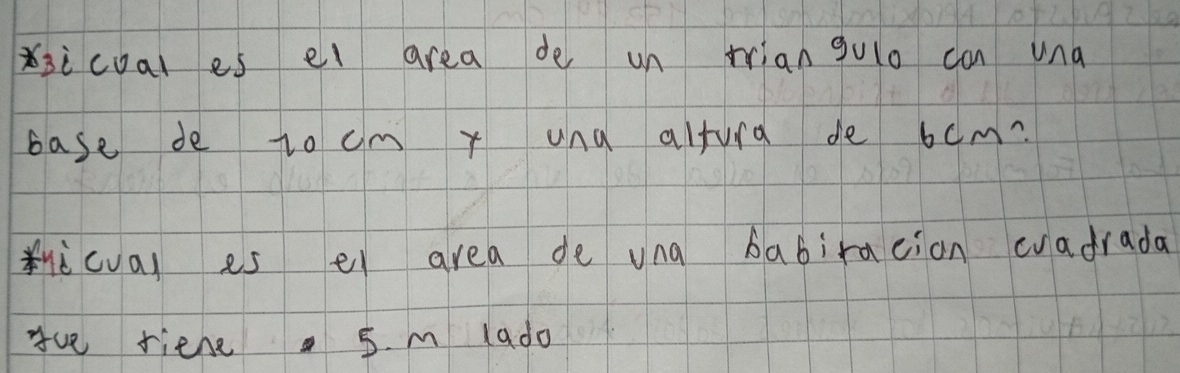 *3¿cual es el area de un triangulo con una
base de 10 cm y una altura de 6cm?
*4¿cual es el area de una habitacion cuadrada
que tiene 5 m lado